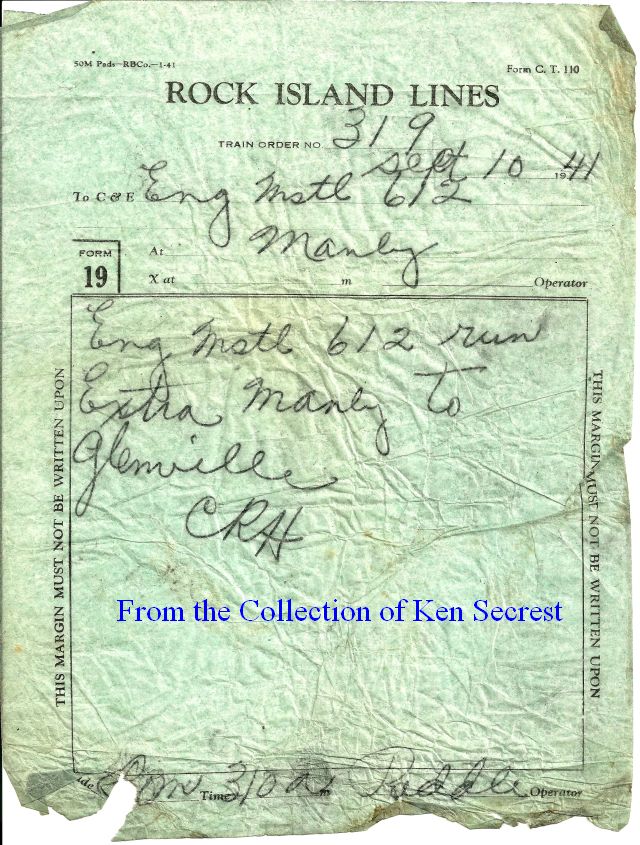 50M Pads—RBCo.—1-41
Form C. T. 110
ROCK ISLAND LINES
TRAIN ORDER NO. 319
Sept 10 1941
To C & E Eng Mstl 612
FORM 19
At Manly
X at m Operator
THIS MARGIN MUST NOT BE WRITTEN UPON
Eng Mstl 612 run
Extra Manly to
Glenville
CRH
THIS MARGIN MUST NOT BE WRITTEN UPON
From the Collection of Ken Secrest
Com Time 310 a m Paddle Operator